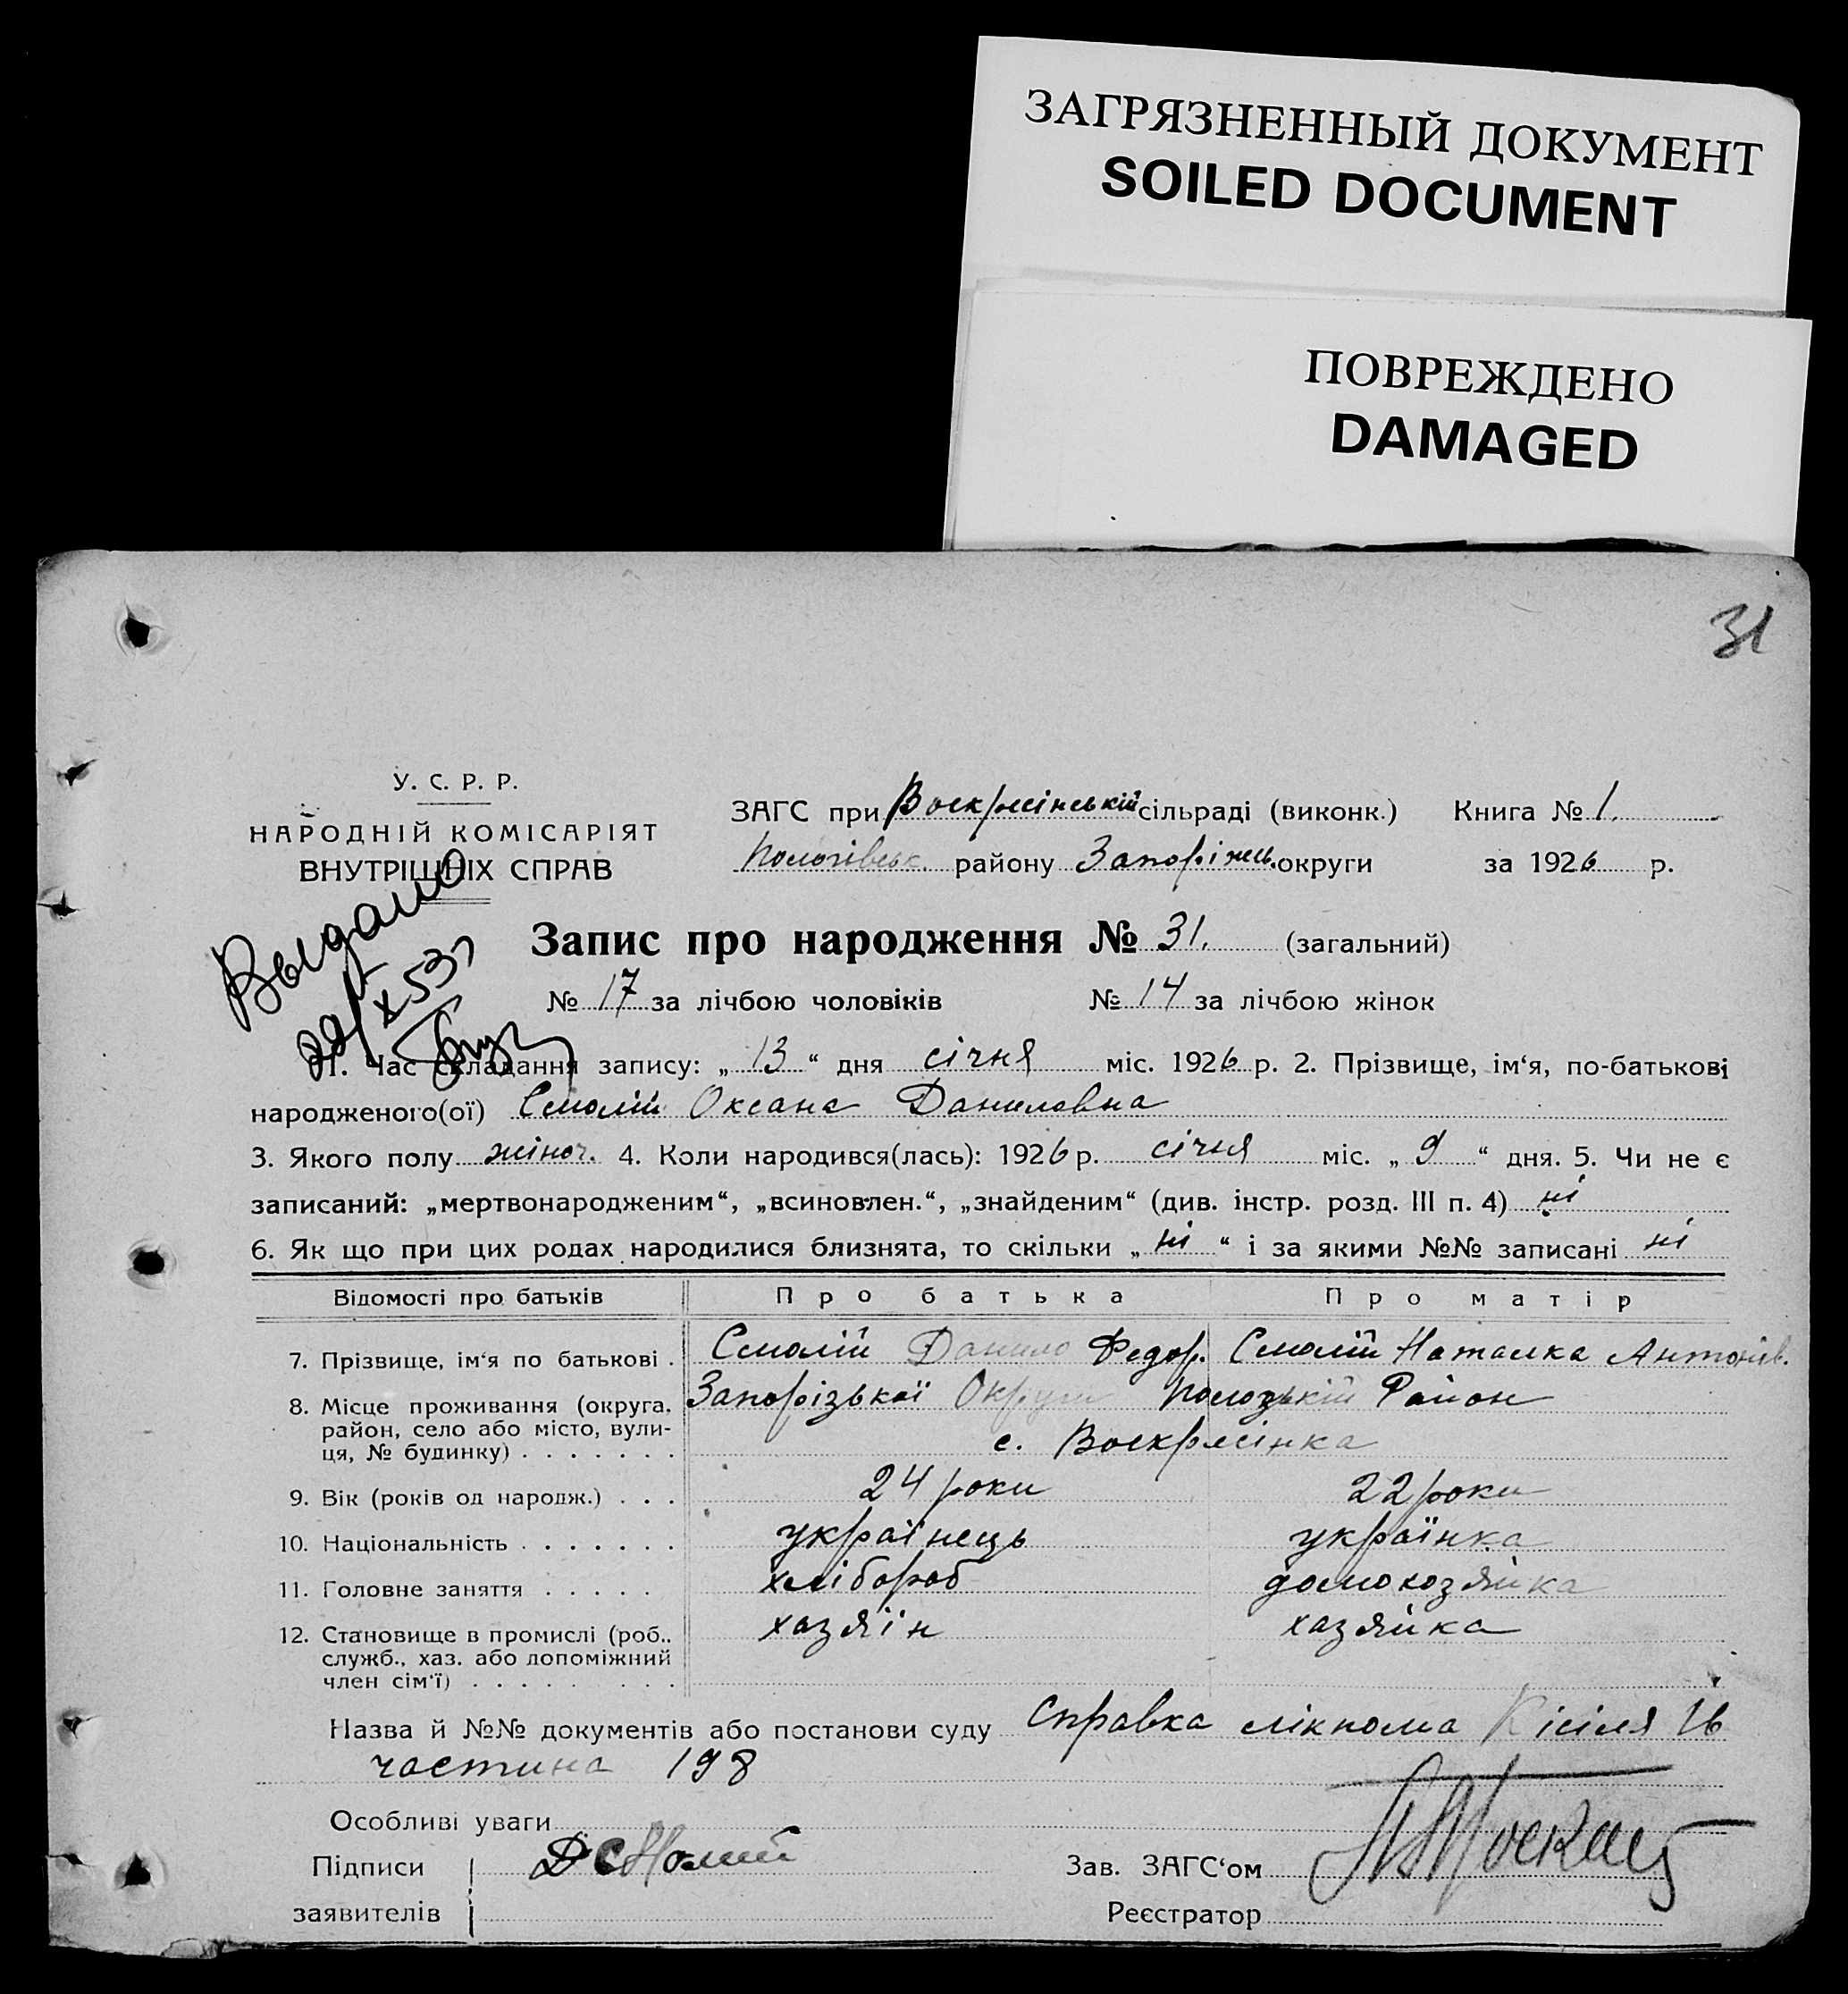 ЗАГРЯЗНЕННЫЙ ДОКУМЕНТ
SOILED DOCUMENT
ПОВРЕЖДЕНО
DAMAGED
31
У. С. Р. Р.
НАРОДНІЙ КОМІСАРІЯТ
ВНУТРІШНІХ СПРАВ
ЗАГС при Воскресінській сільраді (виконк.) Книга № 1.
Пологівськ. району Запоріжськ. округи за 1926 р.
Выдано
22/X 53г
Запис про народження № 31. (загальний)
№ 17 за лічбою чоловіків № 14 за лічбою жінок
1. Час складання запису: „ 13 “ дня січня міс. 1926 р. 2. Прізвище, ім‘я, по-батькові
народженого(ої) Смолій Оксана Даниловна
3. Якого полу жіноч. 4. Коли народився(лась): 1926 р. січня міс. „ 9 “ дня. 5. Чи не є
записаний: „мертвонародженим“, „всиновлен.“, „знайденим“ (див. інстр. розд. III п. 4) ні
6. Як що при цих родах народилися близнята, то скільки „ ні “ і за якими №№ записані ні
Відомості про батьків Про батька Про матір
7. Прізвище, ім‘я по батькові . Смолій Данило Федор. Смолій Наталка Антонів.
8. Місце проживання (округа, Запорізької Округи Пологзькій Район
район, село або місто, вули-
ця, № будинку) . . . . . . . с. Воскресінка
9. Вік (років од народж.) . . . 24 роки 22 роки
10. Національність . . . . . . . українець українка
11. Головне заняття . . . . . хлібороб домохозяйка
12. Становище в промислі (роб., хазяін хазяйка
служб., хаз. або допоміжний
член сім‘ї) . . . . . . . . .
Назва й №№ документів або постанови суду Справка лікпома Кісіля Ів
частина 198
Особливі уваги
Підписи Д Смолий Зав. ЗАГС‘ом
заявителів Реєстратор